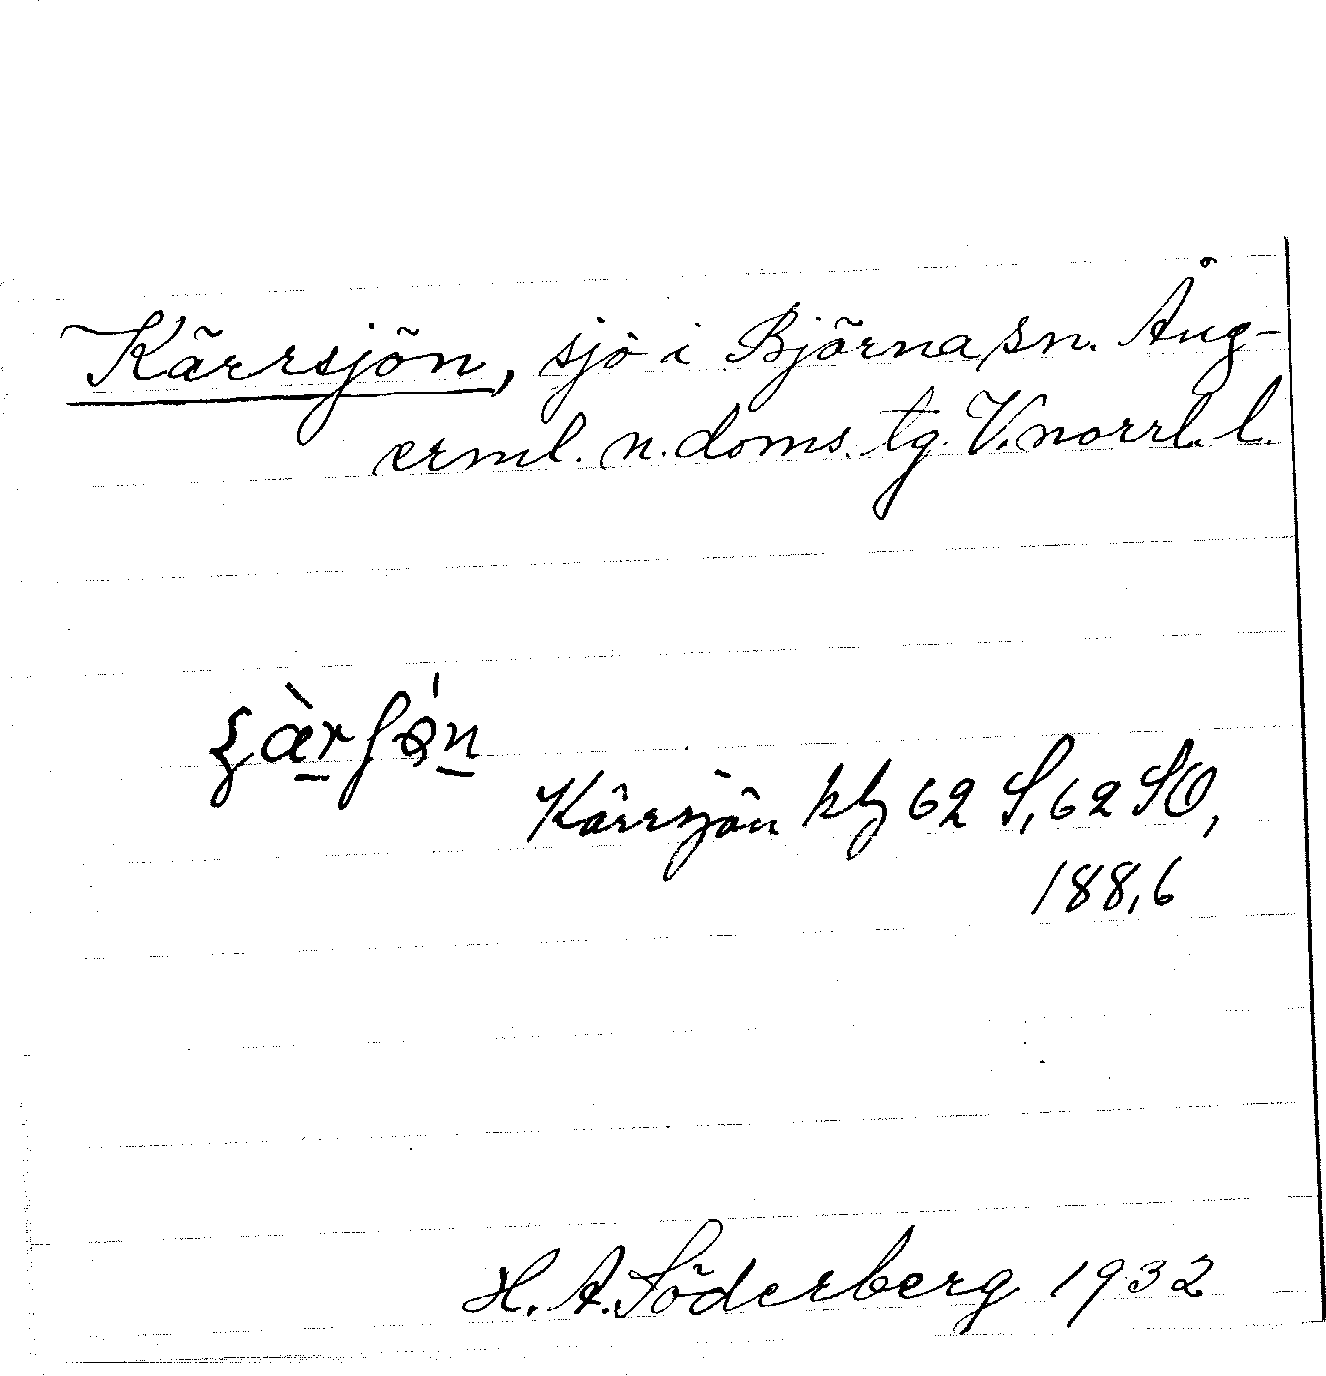 Kärrsjön, sjö i Björna sn. Ång-
erml. n. doms. tg. V.norrl. l.
Kärrsjön kbl 62 S, 62 SO,
188,6
H. A. Söderberg 1932